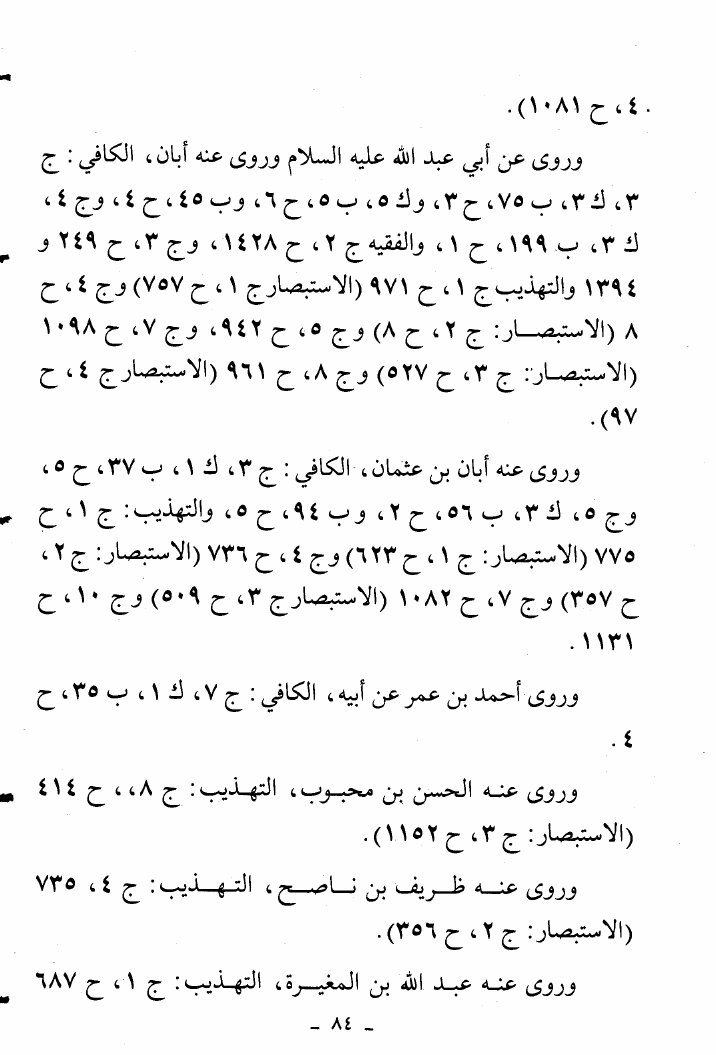 ٤، ح ١٠٨١).
وروى عن أبي عبد الله عليه السلام وروى عنه أبان، الكافي: ج
٣، ك ٣، ب ٧٥، ح ٣، وك ٥، ب ٥، ح ٦، وب ٤٥، ح ٤، وج ٤،
ك ٣، ب ١٩٩، ح ١، والفقيه ج ٢، ح ١٤٢٨، وج ٣، ح ٢٤٩ و
١٣٩٤ والتهذيب ج ١، ح ٩٧١ (الاستبصار ج ١، ح ٧٥٧) وج ٤، ح
٨ (الاستبصار: ج ٢، ح ٨) وج ٥، ح ٩٤٢، وج ٧، ح ١٠٩٨
(الاستبصار: ج ٣، ح ٥٢٧) وج ٨، ح ٩٦١ (الاستبصار ج ٤، ح
٩٧).
وروى عنه أبان بن عثمان، الكافي: ج ٣، ك ١، ب ٣٧، ح ٥،
وج ٥، ك ٣، ب ٥٦، ح ٢، وب ٩٤، ح ٥، والتهذيب: ج ١، ح
٧٧٥ (الاستبصار: ج ١، ح ٦٢٣) وج ٤، ح ٧٣٦ (الاستبصار: ج ٢،
ح ٣٥٧) وج ٧، ح ١٠٨٢ (الاستبصار ج ٣، ح ٥٠٩) وج ١٠، ح
١١٣١.
وروى أحمد بن عمر عن أبيه، الكافي: ج ٧، ك ١، ب ٣٥، ح
٤.
وروى عنه الحسن بن محبوب، التهذيب: ج ٨،، ح ٤١٤
(الاستبصار: ج ٣، ح ١١٥٢).
وروى عنه ظريف بن ناصح، التهذيب: ج ٤، ٧٣٥
(الاستبصار: ج ٢، ح ٣٥٦).
وروى عنه عبد الله بن المغيرة، التهذيب: ج ١، ح ٦٨٧
ـ ٨٤ ـ